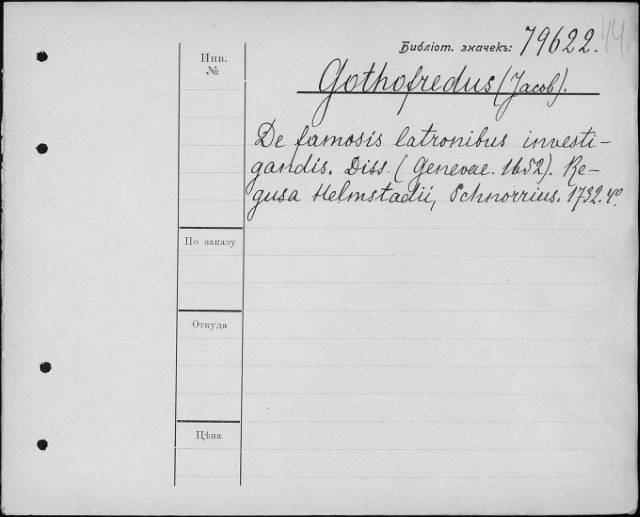 Библіот. значекъ: 79622.
44
Инв.
№
Gothofredus (Jacob).
De famosis latronibus investi-
gandis. Diss. (Genevae. 1652). Re-
gusa Helmstadii, Schnorrius. 1732. 4º.
По заказу
Откуда
Цѣна